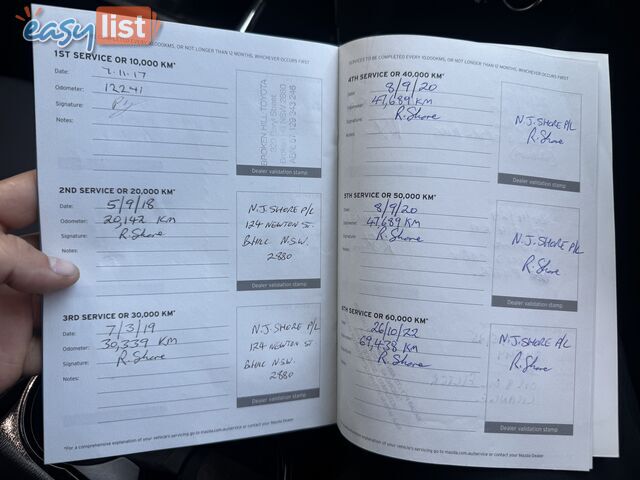 easylist
10,000KMS, OR NOT LONGER THAN 12 MONTHS, WHICHEVER OCCURS FIRST
1ST SERVICE OR 10,000 KM*
Date: 7.11.17
Odometer: 12241
Signature:
Notes:
BROKEN HILL TOYOTA
Dealer validation stamp
2ND SERVICE OR 20,000 KM*
Date: 5/9/18
Odometer: 20,142 KM
Signature: R.Shore
Notes:
N.J.SHORE P/L
124 NEWTON ST.
B/HILL N.S.W.
2880
Dealer validation stamp
3RD SERVICE OR 30,000 KM*
Date: 7/3/19
Odometer: 30,339 KM
Signature: R.Shore
Notes:
N.J.SHORE P/L
124 NEWTON ST
B/HILL NSW.
2880
Dealer validation stamp
*For a comprehensive explanation of your vehicle's servicing go to mazda.com.au/service or contact your Mazda Dealer
SERVICES TO BE COMPLETED EVERY 10,000KMS, OR NOT LONGER THAN 12 MONTHS, WHICHEVER OCCURS FIRST
4TH SERVICE OR 40,000 KM*
Date: 8/9/20
Odometer: 47,689 KM
Signature: R.Shore
Notes:
N.J.SHORE P/L
R.Shore
Dealer validation stamp
5TH SERVICE OR 50,000 KM*
Date: 8/9/20
Odometer: 47,689 KM
Signature: R.Shore
Notes:
N.J.SHORE P/L
R.Shore
Dealer validation stamp
6TH SERVICE OR 60,000 KM*
26/10/22
69,438 KM
R.Shore
N.J.SHORE P/L
R.Shore
Dealer validation stamp
*For a comprehensive explanation of your vehicle's servicing go to mazda.com.au/service or contact your Mazda Dealer